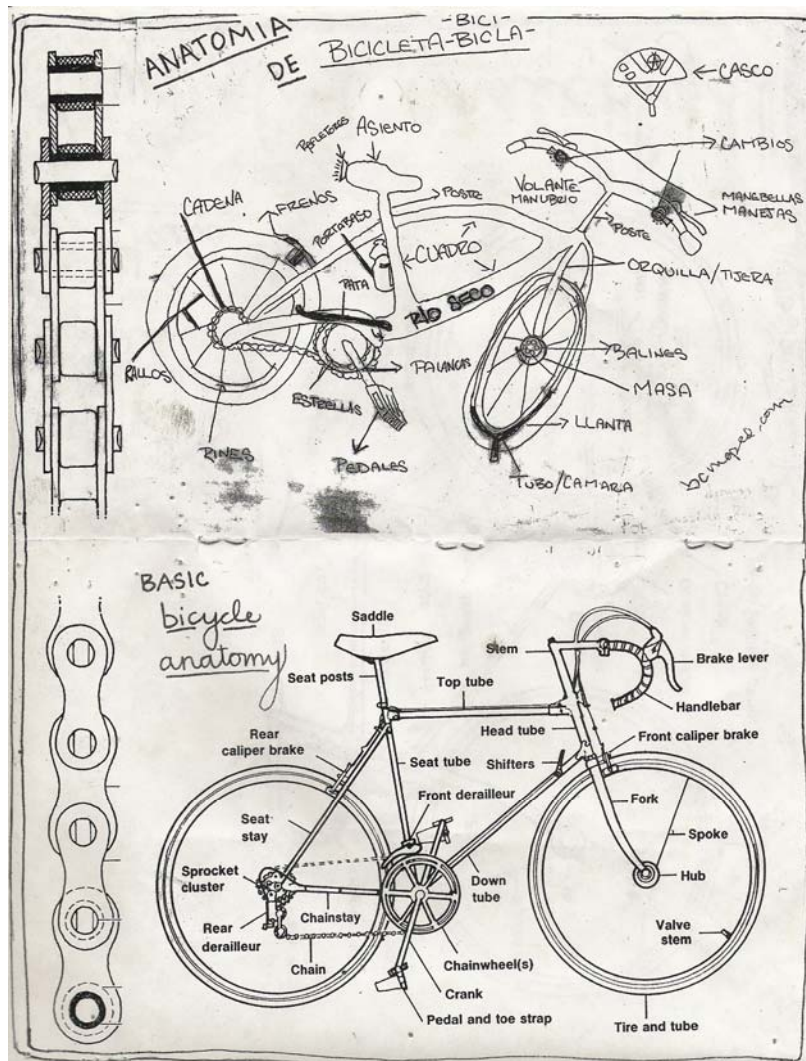 ANATOMIA
DE
-BICI-
BICICLETA-BICLA-
CASCO
REFLETEROS
ASIENTO
CAMBIOS
VOLANTE
MANUBRIO
MANEBELLAS
MANETAS
CADENA
FRENOS
POSTE
PORTABASO
CUADRO
POSTE
ORQUILLA/TIJERA
PATA
RIO SECO
RALLOS
BALINES
PALANCAS
MASA
ESTRELLAS
LLANTA
RINES
PEDALES
TUBO/CAMARA
bcmoped.com
BASIC
bicycle
anatomy
Saddle
Stem
Brake lever
Seat posts
Top tube
Handlebar
Rear
caliper brake
Head tube
Front caliper brake
Seat tube
Shifters
Front derailleur
Fork
Seat
stay
Spoke
Sprocket
cluster
Down
tube
Hub
Chainstay
Rear
derailleur
Valve
stem
Chain
Chainwheel(s)
Crank
Pedal and toe strap
Tire and tube